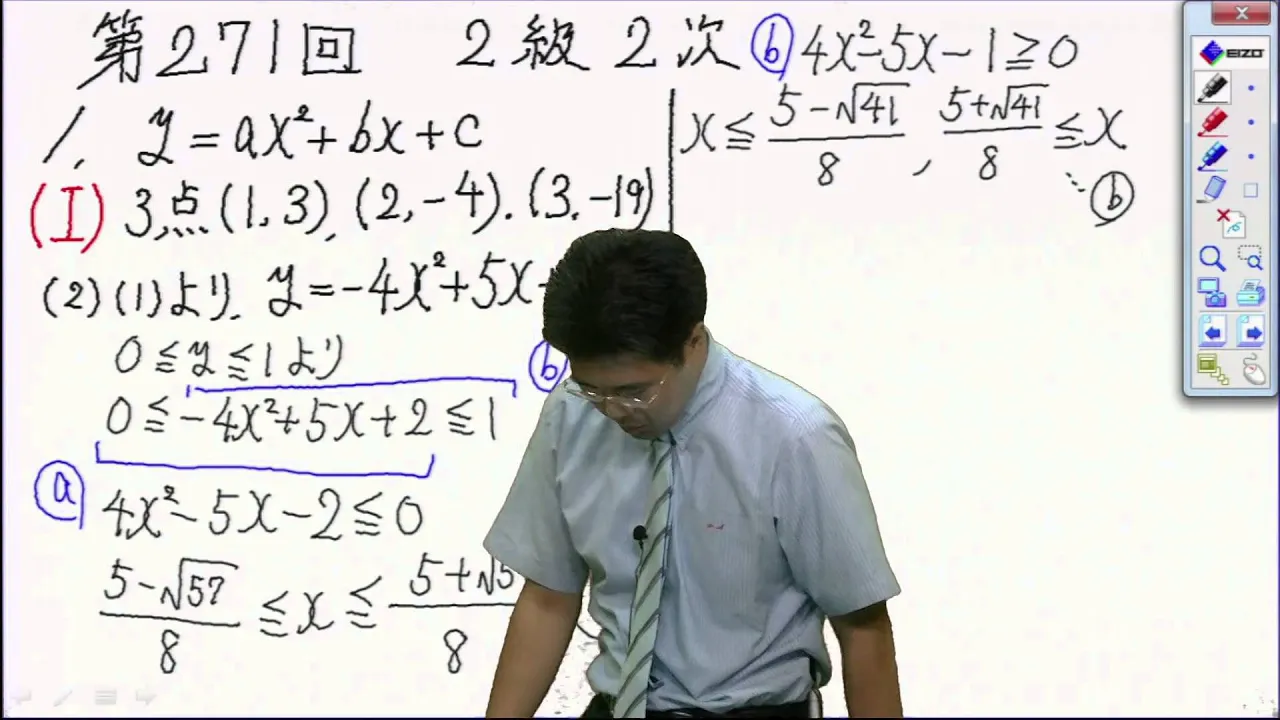 第271回 2級2次
1. y=ax²+bx+c
(I) 3点(1,3),(2,-4).(3.-19)
(2)(1)より、y=-4x²+5x
0≦y≦1より
0≦-4x²+5x+2≦1
ⓐ 4x²-5x-2≦0
5-√57/8 ≦x≦ 5+√5/8
ⓑ
ⓑ 4x²-5x-1≧0
x≦ 5-√41/8 , 5+√41/8 ≦x
…ⓑ
EIZO